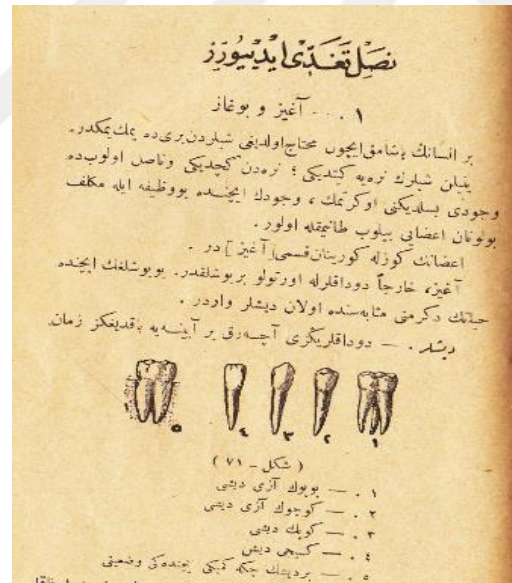 نصل تغدّی ایدیيورز
۱ . — آغیز و بوغاز
بر انسانك یشامق ایچون محتاج اولدیغی شیلردن بری ده یمك یمكدر.
ینیلن شیلرك نره یه كیتدیكی ؛ نره دن كچدیكی وناصل اولوب ده
وجودی بسلدیكنی اوكرنمك ، وجودك ایچنده بووظیفه ایله مكلف
بولونان اعضایی بیلوب طانیمقله اولور .
اعضانك كوزله كورینان قسمی [ آغیز ] در .
آغیز، خارجاً دوداقلرله اورتولو بربوشلقدر. بوبوشلغك ایچنده
حیاتك دكرمنی مثابه سنده اولان دیشلر واردر .
دیشلر . — دوداقلریكزی آچه رق بر آیینه یه باقدیغكز زمان
۵ ٤ ۳ ۲ ۱
( شكل – ۷۱ )
۱ . — بویوك آزی دیشی
۲ . — كوچوك آزی دیشی
۳ . — كوپك دیشی
٤ . — كسیجی دیش
۵ . — بردیشك چكه كمیكی ایچنده كی وضعیتی